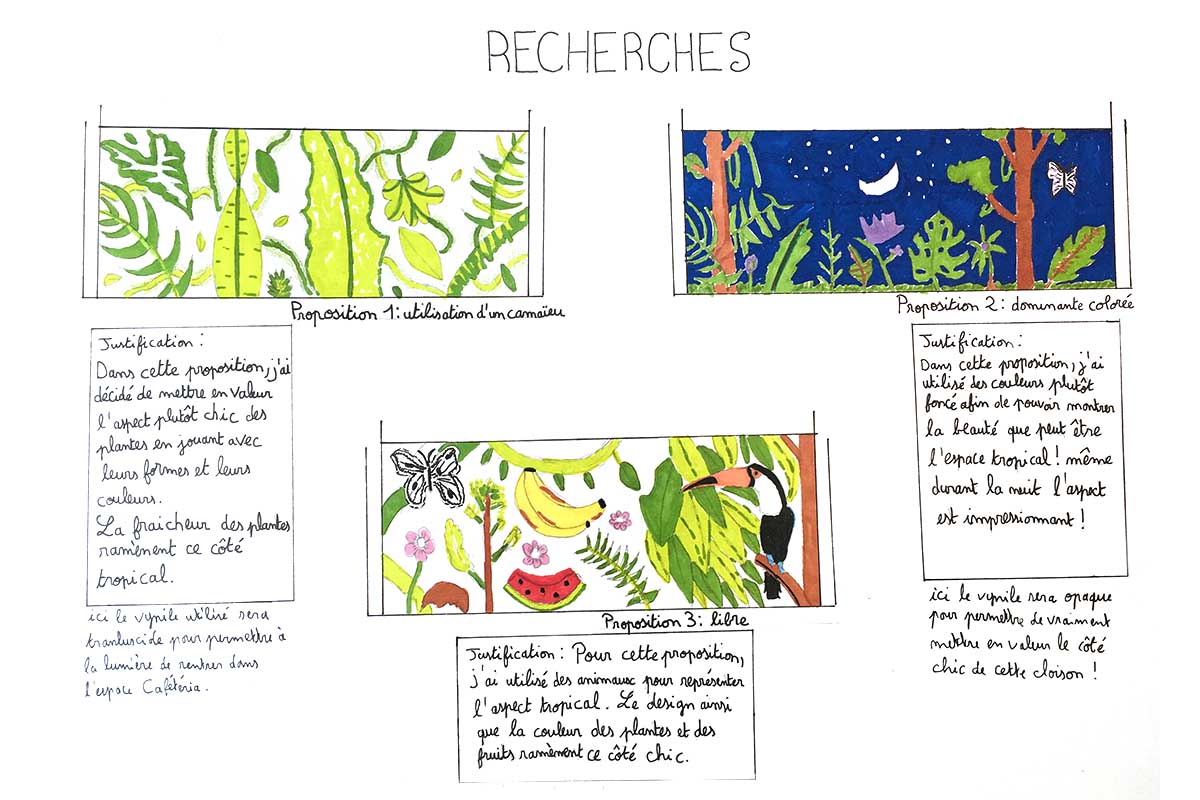 RECHERCHES
Proposition 1: utilisation d'un camaïeu
Justification :
Dans cette proposition, j'ai
décidé de mettre en valeur
l'aspect plutôt chic des
plantes en jouant avec
leurs formes et leurs
couleurs.
La fraicheur des plantes
ramènent ce côté
tropical.
ici le vynile utilisé sera
tranluscide pour permettre à
la lumière de rentrer dans
l'espace Cafétéria.
Proposition 2: dominante colorée
Justification :
Dans cette proposition, j'ai
utilisé des couleurs plutôt
foncé afin de pouvoir montrer
la beauté que peut être
l'espace tropical! même
durant la nuit l'aspect
est impressionnant !
ici le vynile sera opaque
pour permettre de vraiment
mettre en valeur le côté
chic de cette cloison !
Proposition 3: libre
Justification : Pour cette proposition,
j'ai utilisé des animaux pour représenter
l'aspect tropical. Le design ainsi
que la couleur des plantes et des
fruits ramènent ce côté chic.